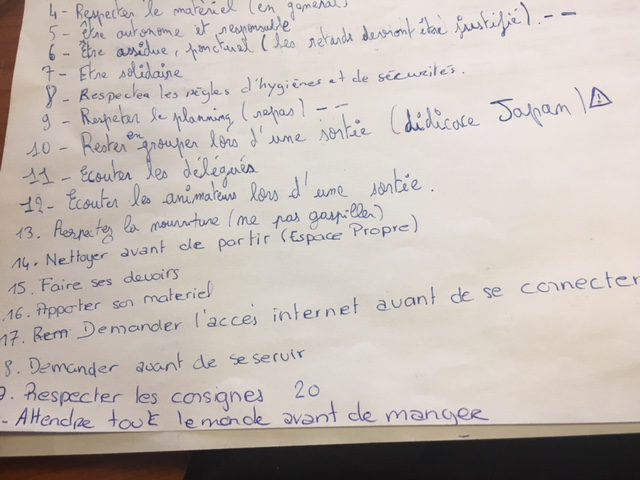 4 - Respecter le matériel (en général)
5 - être autonome et responsable
6 - Être assidue, ponctuel (les retards devront être justifié). - -
7 - Etre solidaire
8 - Respecter les règles d'hygiènes et de sécurités.
9 - Respeter le planning (repas) - -
10 - Rester en grouper lors d'une sortie (didicace Japan) ⚠
11 - Ecouter les délégués
12 - Ecouter les animateurs lors d'une sortie.
13. Respectez la nourriture (ne pas gaspiller)
14. Nettoyer avant de partir (Espace Propre)
15. Faire ses devoirs
16. Apporter son materiel
17. Rem Demander l'accès internet avant de se connecter
8. Demander avant de se servir
9. Respecter les consignes 20
- Attendre tout le monde avant de manger